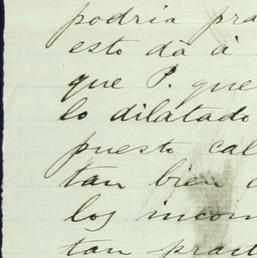 podria pra
esto dà à
que P. que
lo dilatado
puesto cal
tan bien
los incon
tan pract